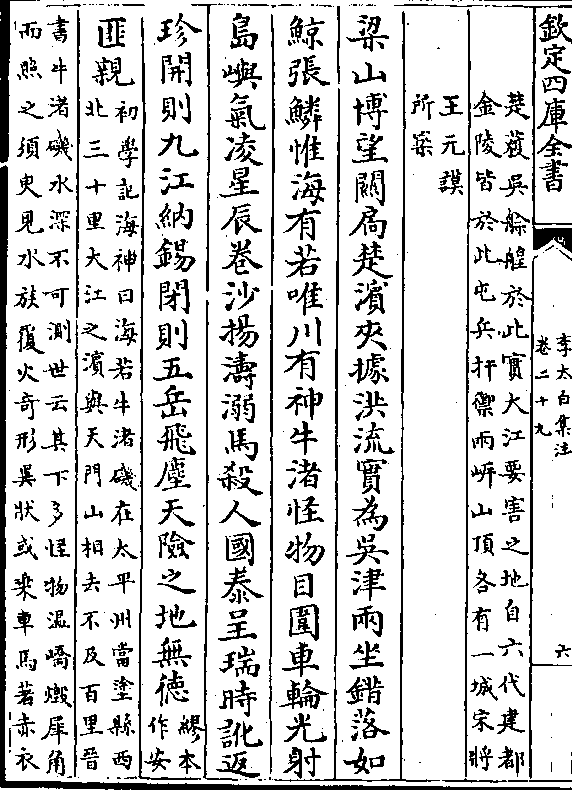 欽定四庫全書
李太白集注
卷二十九
六
楚獲吳艅艎於此實大江要害之地自六代建都
金陵皆於此屯兵扞禦兩岍山頂各有一城宋將
王元謨
所築
梁山博望關扃楚濱夾據洪流實為吳津兩坐錯落如
鯨張鱗惟海有若唯川有神牛渚怪物目圍車輪光射
島嶼氣凌星辰卷沙揚濤溺馬殺人國泰呈瑞時訛返
珍開則九江納錫閉則五岳飛塵天險之地無德
繆本
作安
匪親
初學記海神曰海若牛渚磯在太平州當塗縣西
北三十里大江之濱與天門山相去不及百里晉
書牛渚磯水深不可測世云其下多怪物温嶠燬犀角
而照之須臾見水族覆火奇形異狀或乘車馬著赤衣